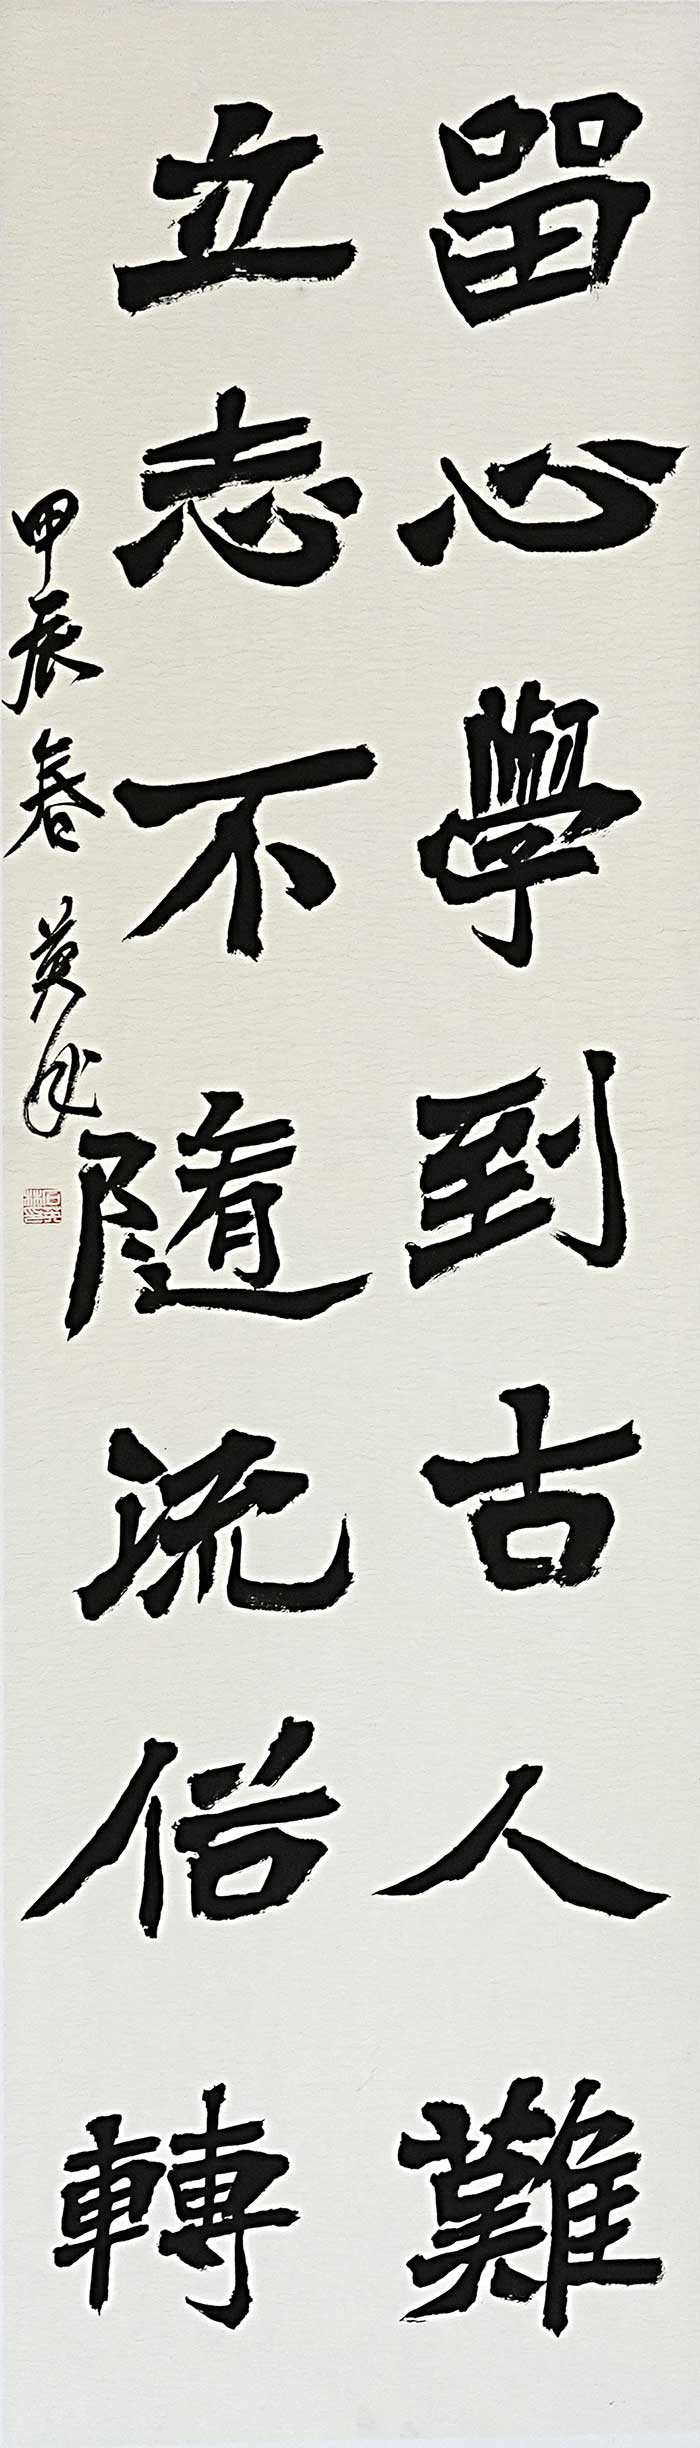 留心學到古人難
立志不隨流俗轉
甲辰春 英成